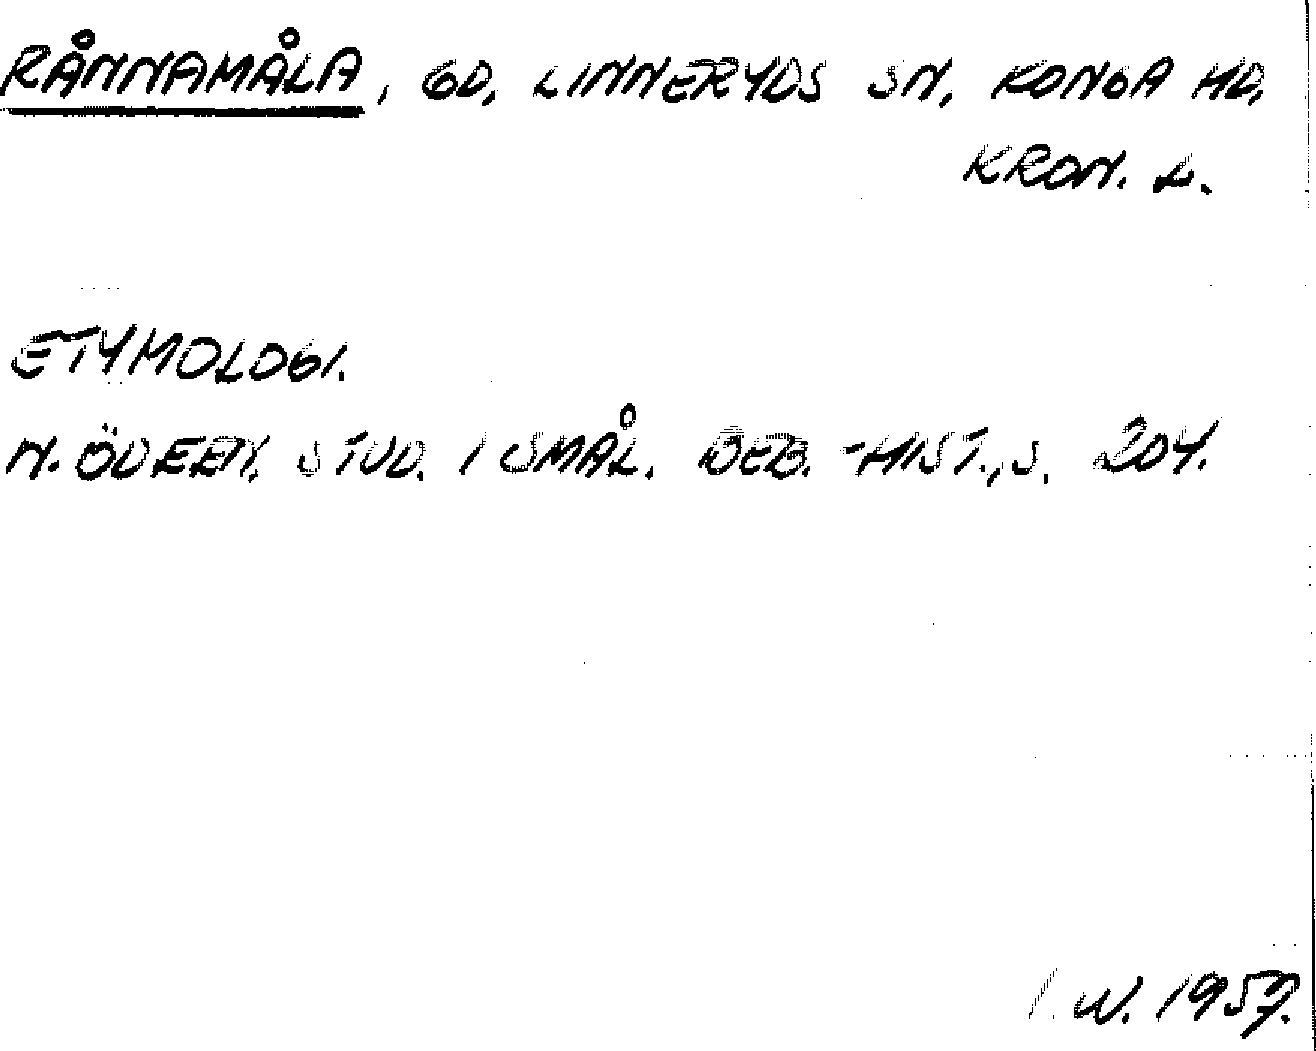 RÅNNAMÅLA, GD, LINNERYDS SN, KONGA HD,
KRON. L.
ETYMOLOGI.
N. ÖDEEN, STUD. I SMÅL. BEB.-HIST., S. 204.
I. W. 1957.